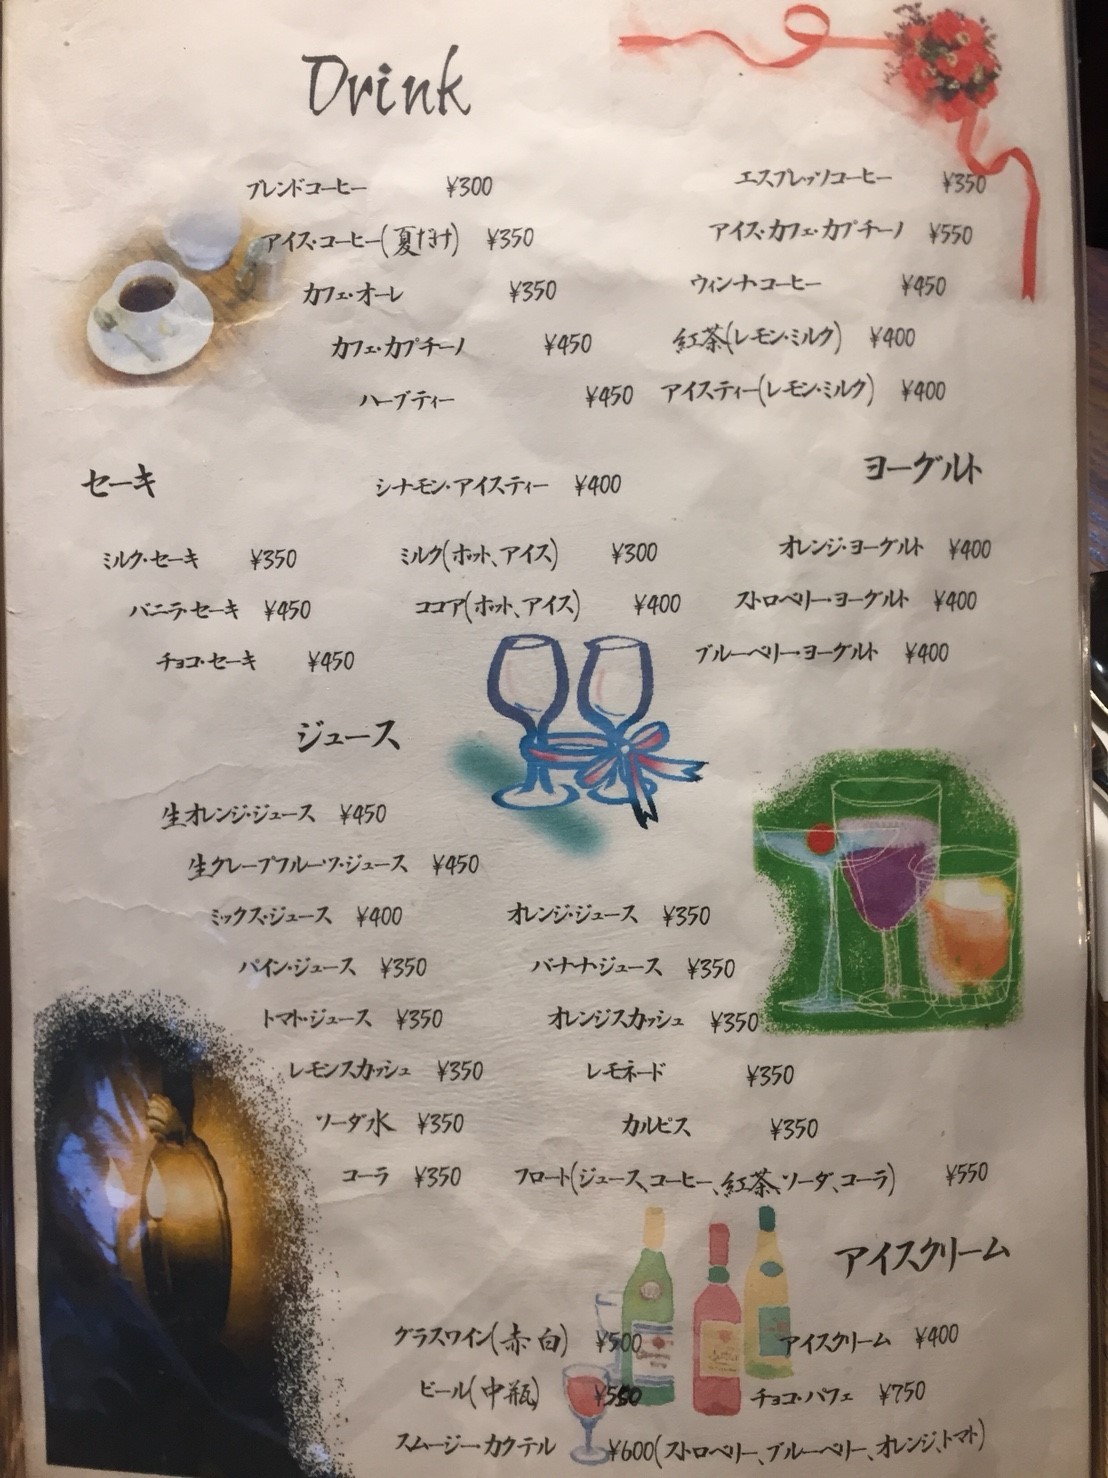 Drink
ブレンドコーヒー ¥300
エスプレッソコーヒー ¥350
アイス・コーヒー(夏だけ) ¥350
アイス・カフェ・カプチーノ ¥550
カフェ・オーレ ¥350
ウィンナ・コーヒー ¥450
カフェ・カプチーノ ¥450
紅茶(レモン・ミルク) ¥400
ハーブティー ¥450
アイスティー(レモン・ミルク) ¥400
セーキ
シナモン・アイスティー ¥400
ヨーグルト
ミルク・セーキ ¥350
ミルク(ホット、アイス) ¥300
オレンジ・ヨーグルト ¥400
バニラ・セーキ ¥450
ココア(ホット、アイス) ¥400
ストロベリー・ヨーグルト ¥400
チョコ・セーキ ¥450
ブルーベリー・ヨーグルト ¥400
ジュース
生オレンジ・ジュース ¥450
生グレープフルーツ・ジュース ¥450
ミックス・ジュース ¥400
オレンジ・ジュース ¥350
パイン・ジュース ¥350
バナナ・ジュース ¥350
トマト・ジュース ¥350
オレンジスカッシュ ¥350
レモンスカッシュ ¥350
レモネード ¥350
ソーダ水 ¥350
カルピス ¥350
コーラ ¥350
フロート(ジュース、コーヒー、紅茶、ソーダ、コーラ) ¥550
アイスクリーム
グラスワイン(赤 白) ¥500
アイスクリーム ¥400
ビール(中瓶) ¥550
チョコ・パフェ ¥750
スムージー・カクテル ¥600(ストロベリー、ブルーベリー、オレンジ、トマト)